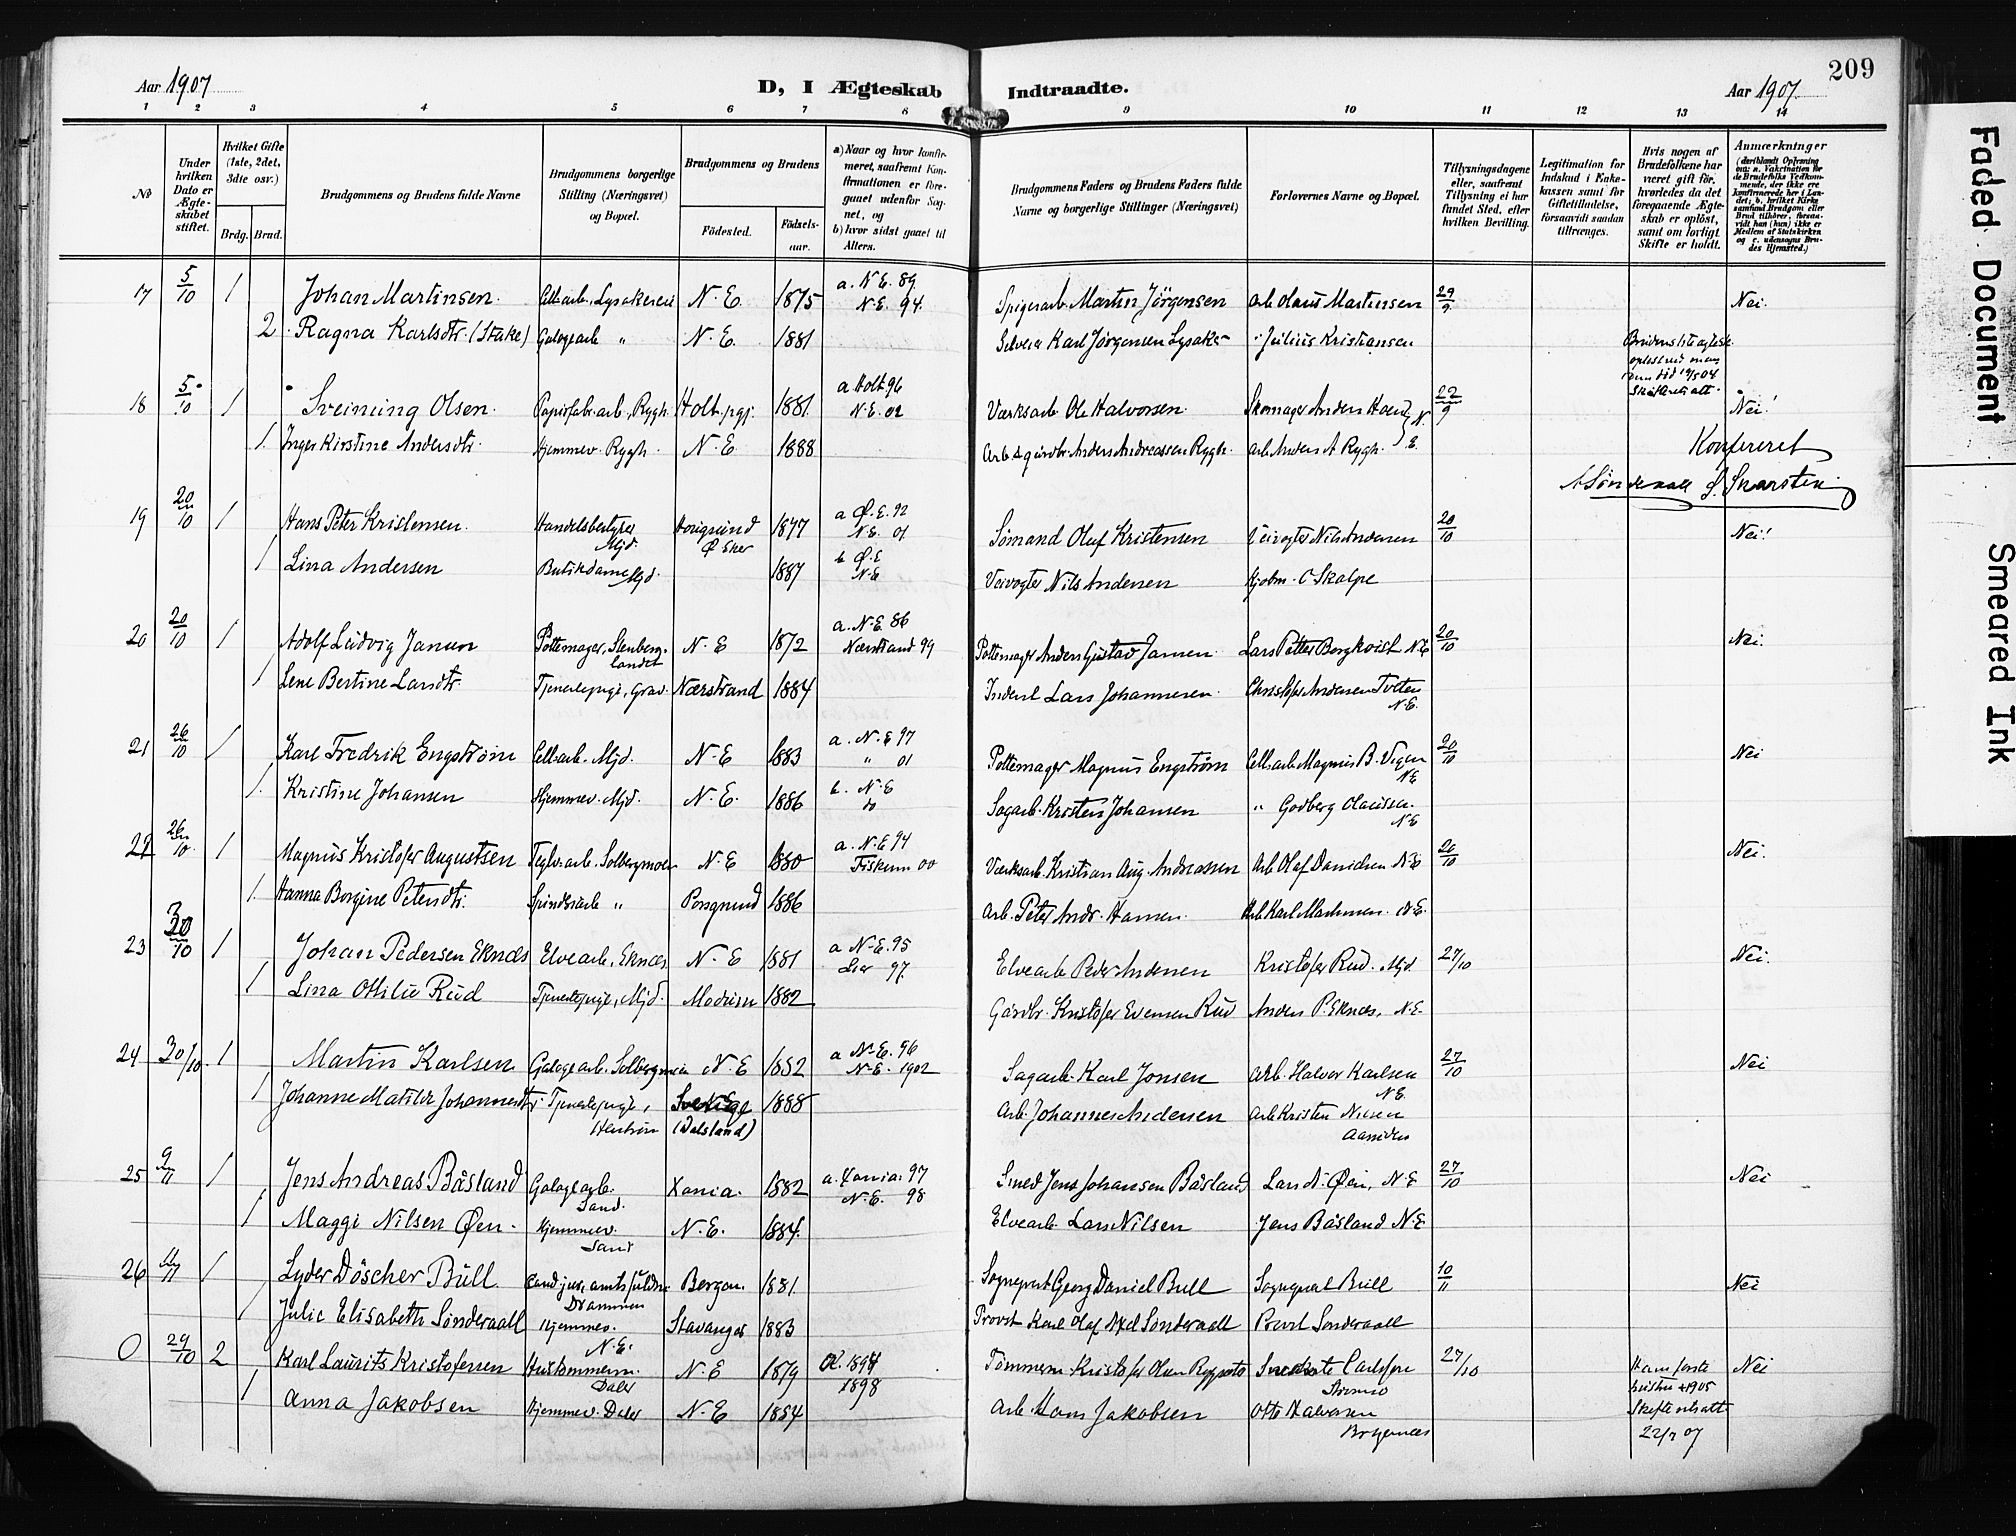 Aar 1907
D, I Ægteskab Indtraadte.
Aar 1907.
209
1 2 3 4 5 6 7 8 9 10 11 12 13 14
No
Under hvilken Dato er Ægteskabet stiftet.
Hvilket Gifte (1ste, 2det, 3die osv.)
Brdg. Brud.
Brudgommens og Brudens fulde Navne
Brudgommens borgerlige Stilling (Næringsvei) og Bopæl.
Brudgommens og Brudens
Fødested.
Fødselsaar.
a) Naar og hvor konfirmeret, saafremt Konfirmationen er foregaaet udenfor Sognet, og
b) hvor sidst gaaet til Alters.
Brudgommens Faders og Brudens Faders fulde Navne og borgerlige Stillinger (Næringsvei)
Forlovernes Navne og Bopæl.
Tillysningsdagene eller, saafremt Tillysning ei har fundet Sted, efter hvilken Bevilling.
Legitimation for Indskud i Enkekassen samt for Giftetilladelse, forsaavidt saadan tiltrænges.
Hvis nogen af Brudefolkene har været gift før, hvorledes da det foregaaende Ægteskab er opløst, samt om lovligt Skifte er holdt.
Anmærkninger
17 5/10 1 Johan Martinsen. Cell.arb. Lysakereie N. E. 1875 a. N. E. 89 N.E. 94. Spigerarb. Martin Jörgensen Arb Olaus Martinsen 29/9 Nei.
2 Ragna Karlsdtr. (Stake) Galogearb " N. E. 1881 Selveier Karl Jörgensen Lysaker " Julius Kristiansen
18 5/10 1 Sveinung Olsen. Papirfabr.arb, Rygh. Holt. pgj. 1881. a Holt 96 N.E. 02 Værksarb Ole Halvorsen. Skomager Anders 22/9 Nei!
1. Inger Kirstine Andersdtr. Hjemmev. Rygh. N. E 1888 Arb & gårdbr. Anders Andreassen Rygh. Arb Anders A Rygh. N. E.
Konfereret
A Sønderaall S. Skarstein
19 20/10 1 Hans Peter Kristensen. Handelsbestyrer Mjd. Ø Eker 1877 a Ø. E. 92 N.E. 01 Sømand Oluf Kristensen Veivogter Nils Andersen 20/10 Nei!
1 Lina Andersen Butikdame Mjd. 1887 b Ø. E N. E Veivogter Nils Andersen Hjolm. O Skalpe
20 20/10 1 Adolf Ludvig Jansen Pottemager, Stenberglandet N. E 1872 a. N.E. 86 Nærstrand 99 Pottemager Anders Gustav Jansen. Lars Petter Bergkvist N E 20/10 Nei.
1 Lene Bertine Larsdtr. Tjenestepige, Grav. Nærstrand 1884 Inderst Lars Johannesen. Christofer Andersen Tveten N. E.
21 26/10 1 Karl Fredrik Engström Cell.arb. Mjd. N. E 1883 a. N. E 97 " 01 Pottemager Magnus Engström Cell.arb. Magnus B. Vigen N E 20/10 Nei
1. Kristine Johansen Hjemmev. Mjd. N. E. 1886 b. N. E do Sagarb. Kristen Johansen " Godberg Olaussen. N E
22 26/10. 1 Magnus Kristofer Augustsen Teglv.arb. Solbergmoen N. E 1880 a. N. E 94 Fiskum 00 Værksarb. Kristian Aug. Andreassen Arb Olaf Danielsen N E 20/10 Nei.
1. Hanna Borgine Petersdtr. Spinderarb " Porsgrund 1886 Arb. Peter Andr. Hansen. Arb Karl Markussen. N E.
23 30/10 1 Johan Pedersen Eknæs Elvearb, Eknæs. N. E 1881 a N.E. 95 Lier 97. Elvearb Peder Andersen Kristofer Rud. Mjd. 27/10 Nei.
1 Lina Ottilie Rud Tjenestepige, Mjd. Modum 1882 Gårdbr. Kristofer Evensen Rud Anders P. Eknæs, N. E.
24 30/10. 1 Martin Karlsen. Galogearb. Solbergmoen N. E 1882 a N.E. 96 N. E. 1902 Sagarb. Karl Jonsen Arb. Halvor Karlsen N.E. 27/10 Nei
1 Johanne Matilde Johannesdtr Tjenestepige, Sverige (Dalsland) 1888 Arb. Johannes Andersen Arb Kristen Nilsen
25 9/11 1 Jens Andreas Båsland Galogearb. Sand. Xania. 1882 a. Xania. 97 N. E. 98 Smed Jens Johansen Båsland Lars N. Øen, N. E 27/10 Nei
1 Maggi Nilsen Øen. Hjemmev. Sand N. E. 1884. Elvearb. Lars Nilsen Jens Båsland N. E
26 1 Lyder Döscher Bull cand jur, amtsfuldm. Drammen Bergen. 1881. Sogneprest Georg Daniel Bull Sogneprest Bull 10/11 Nei
1 Julie Elisabeth Sønderaall Hjemmev. N. E. Stavanger 1883 Provst Karl Olaf Axel Sønderaall Provst Sønderaall
0 29/10 2 Karl Laurits Kristofersen Daler N. E 1879 1894 1898 Tømmerm. Kristofer Olsen Carlsen Strømsø 27/10 Hans første hustru † 1905 Skifte utsatt 22/2 07 Nei
1 Anna Jakobsen Hjemmev. Daler N. E 1884 Arb. Hans Jakobsen Otto Halvorsen Bragernæs
Faded Document
Smeared Ink